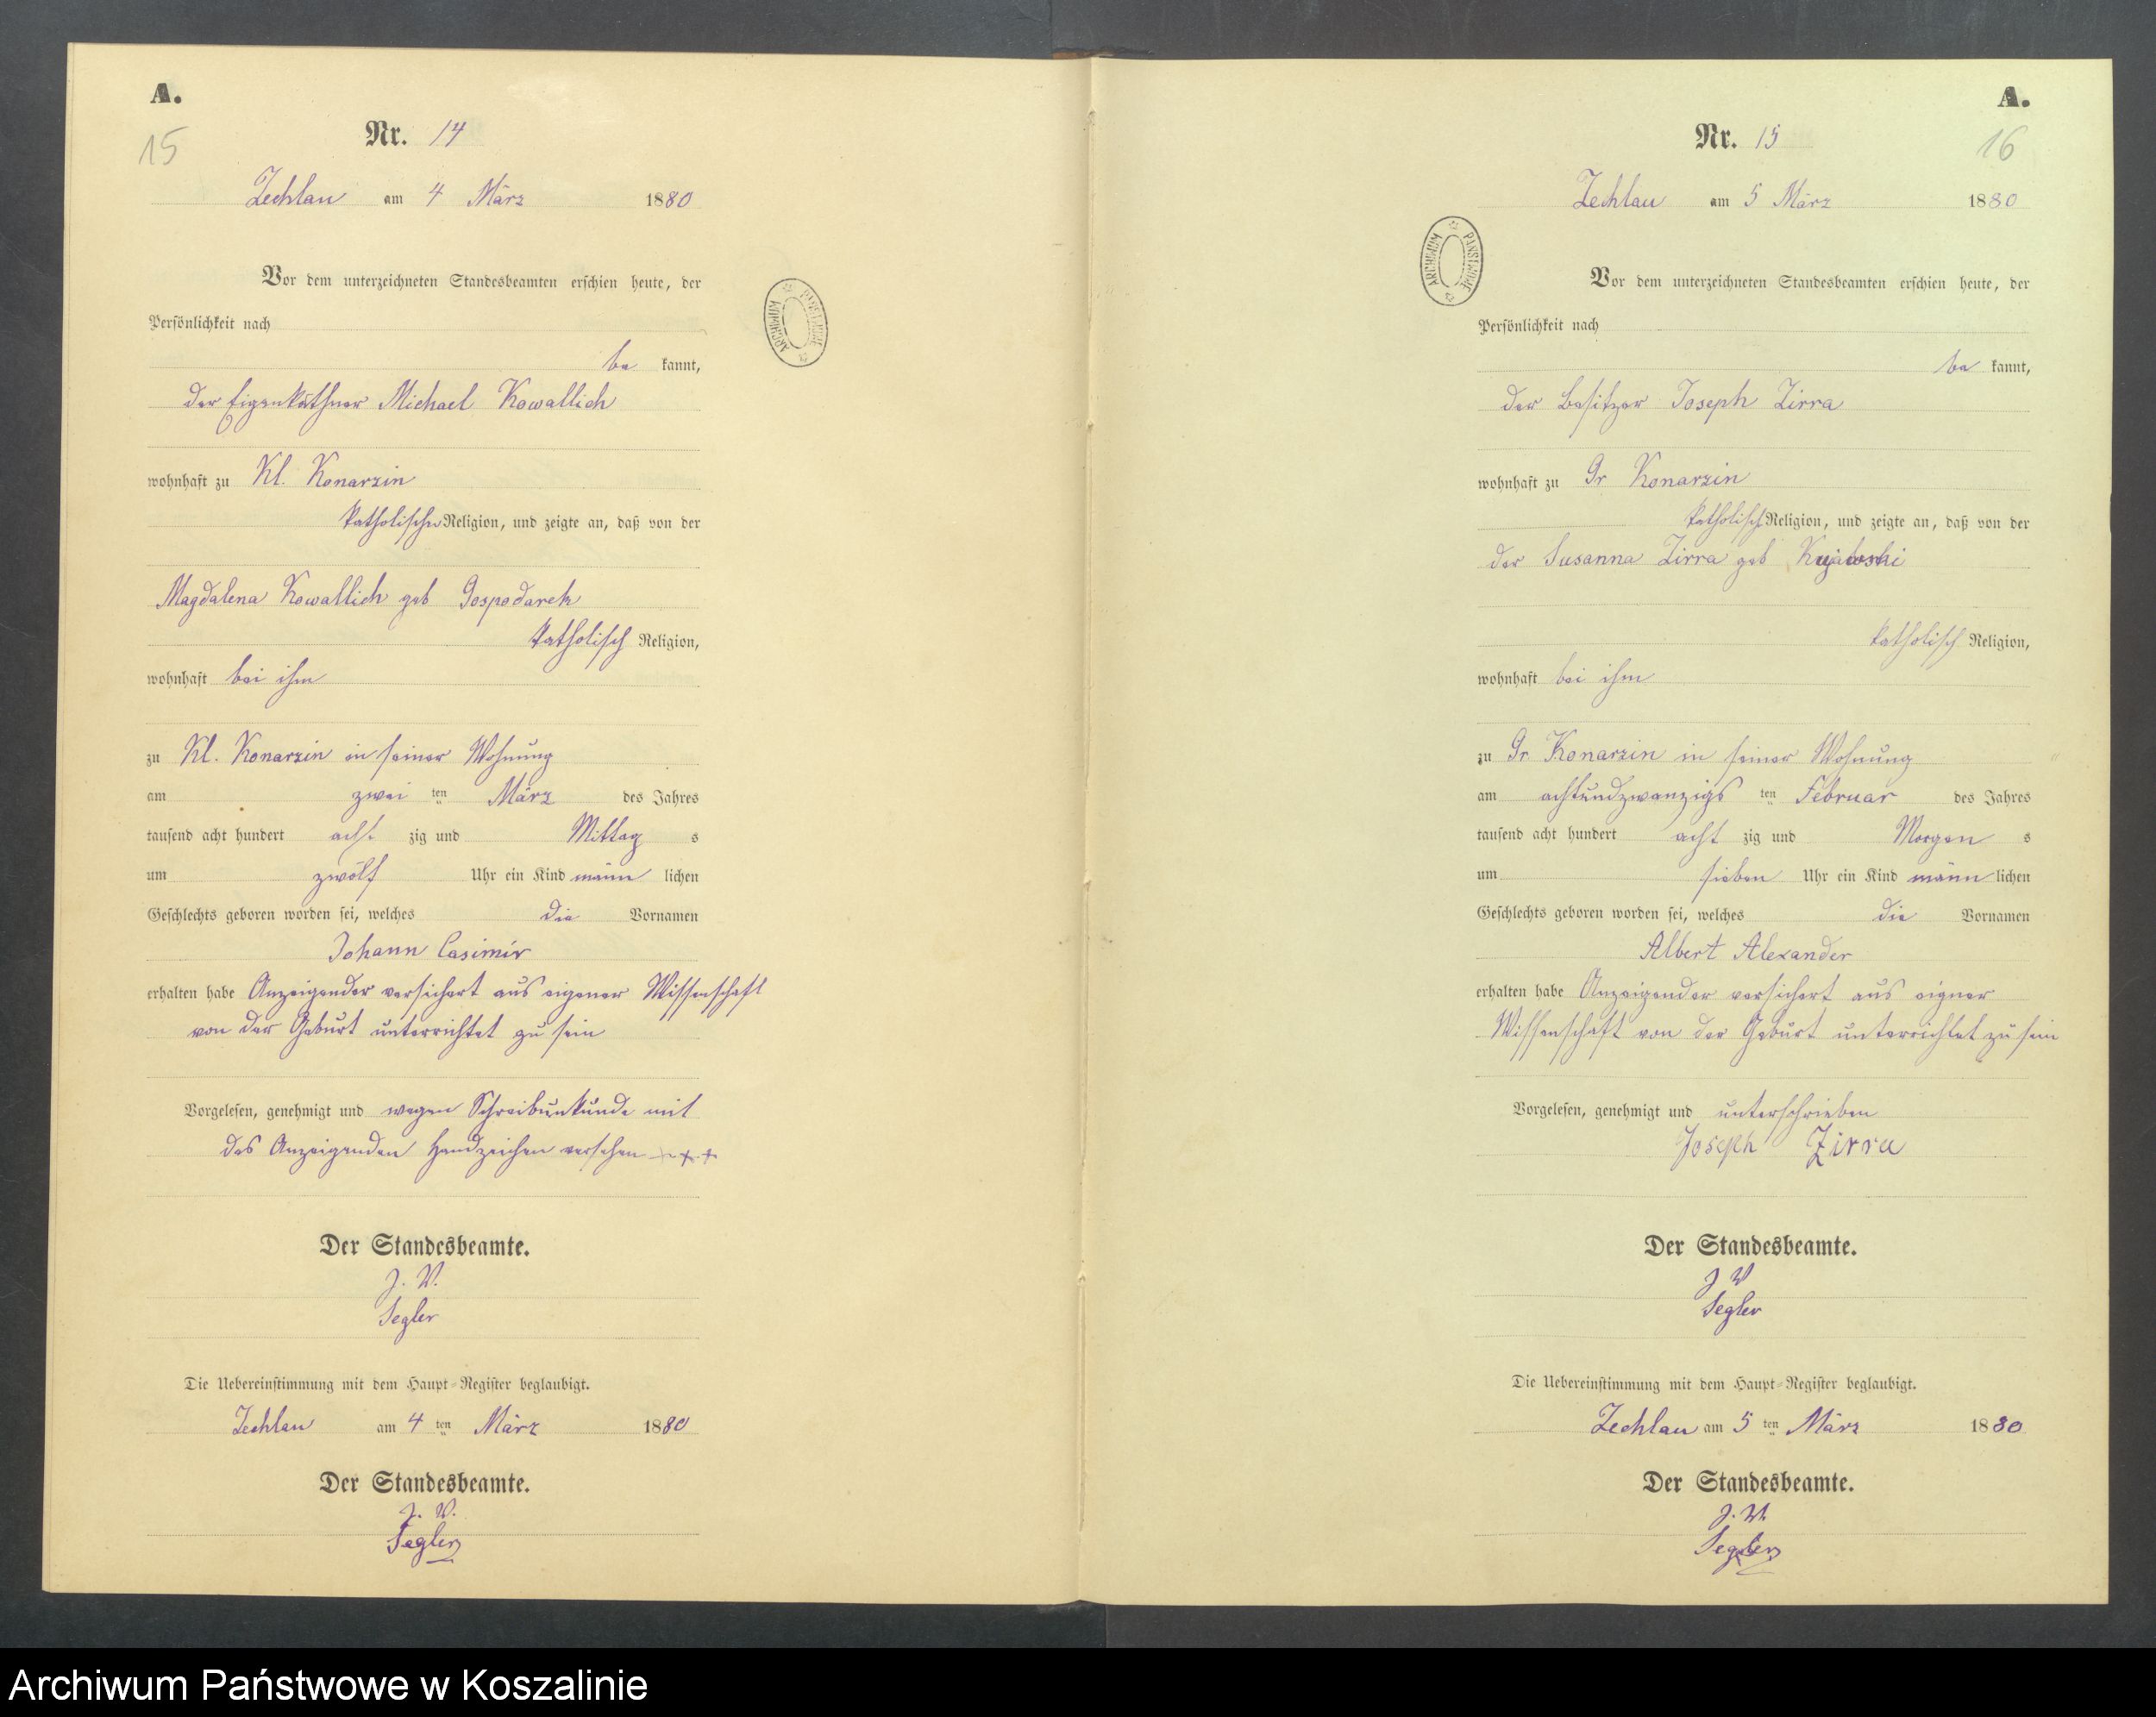 A.
15
Nr. 14
Zechlau am 4 März 1880
Vor dem unterzeichneten Standesbeamten erschien heute, der
Persönlichkeit nach
be kannt,
der Eigenkäthner Michael Kowallich
wohnhaft zu Kl. Konarzin
katholischer Religion, und zeigte an, daß von der
Magdalena Kowallich geb Gospodarek
katholisch Religion,
wohnhaft bei ihm
zu Kl. Konarzin in seiner Wohnung
am zwei ten März des Jahres
tausend acht hundert acht zig und Mittag s
um zwölf Uhr ein Kind männ lichen
Geschlechts geboren worden sei, welches die Vornamen
Johann Casimir
erhalten habe Anzeigender versichert aus eigener Wissenschaft
von der Geburt unterrichtet zu sein
Vorgelesen, genehmigt und wegen Schreibunkunde mit
des Anzeigenden Handzeichen versehen +++
Der Standesbeamte.
J. V.
Segler
Die Uebereinstimmung mit dem Haupt-Register beglaubigt.
Zechlau am 4 ten März 1880
Der Standesbeamte.
J. V.
Segler
ARCHIWUM PAŃSTWOWE
A.
16
Nr. 15
Zechlau am 5 März 1880
ARCHIWUM PAŃSTWOWE
Vor dem unterzeichneten Standesbeamten erschien heute, der
Persönlichkeit nach
be kannt,
der Besitzer Joseph Zirra
wohnhaft zu Gr Konarzin
katholisch Religion, und zeigte an, daß von der
der Susanna Zirra geb Kujawski
katholisch Religion,
wohnhaft bei ihm
zu Gr. Konarzin in seiner Wohnung
am achtundzwanzigs ten Februar des Jahres
tausend acht hundert acht zig und Morgen s
um sieben Uhr ein Kind männ lichen
Geschlechts geboren worden sei, welches die Vornamen
Albert Alexander
erhalten habe Anzeigender versichert aus eigner
Wissenschaft von der Geburt unterrichtet zu sein
Vorgelesen, genehmigt und unterschrieben
Joseph Zirra
Der Standesbeamte.
J V
Segler
Die Uebereinstimmung mit dem Haupt-Register beglaubigt.
Zechlau am 5 ten März 1880
Der Standesbeamte.
J. V.
Segler
Archiwum Państwowe w Koszalinie